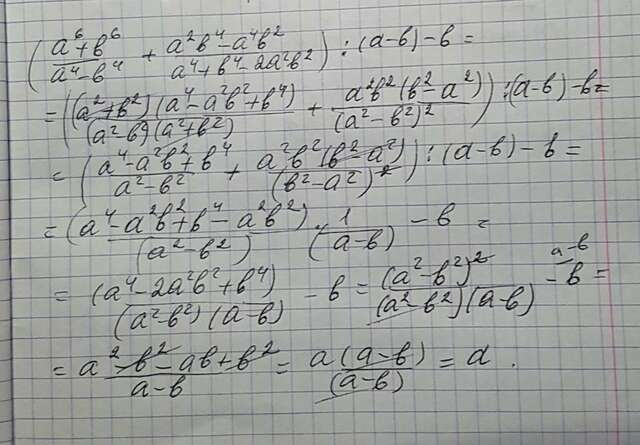 ( (a⁶+b⁶)/(a⁴-b⁴) + (a²b⁴-a⁴b²)/(a⁴+b⁴-2a²b²) ) : (a-b) - b =
= ( (a²+b²)(a⁴-a²b²+b⁴)/((a²-b²)(a²+b²)) + a²b²(b²-a²)/(a²-b²)² ) : (a-b) - b =
= ( (a⁴-a²b²+b⁴)/(a²-b²) + a²b²(b²-a²)/(b²-a²)² ) : (a-b) - b =
= (a⁴-a²b²+b⁴-a²b²)/(a²-b²) · 1/(a-b) - b =
= (a⁴-2a²b²+b⁴)/((a²-b²)(a-b)) - b = (a²-b²)²/((a²-b²)(a-b)) - b^(a-b) =
= (a²-b²-ab+b²)/(a-b) = a(a-b)/(a-b) = a.